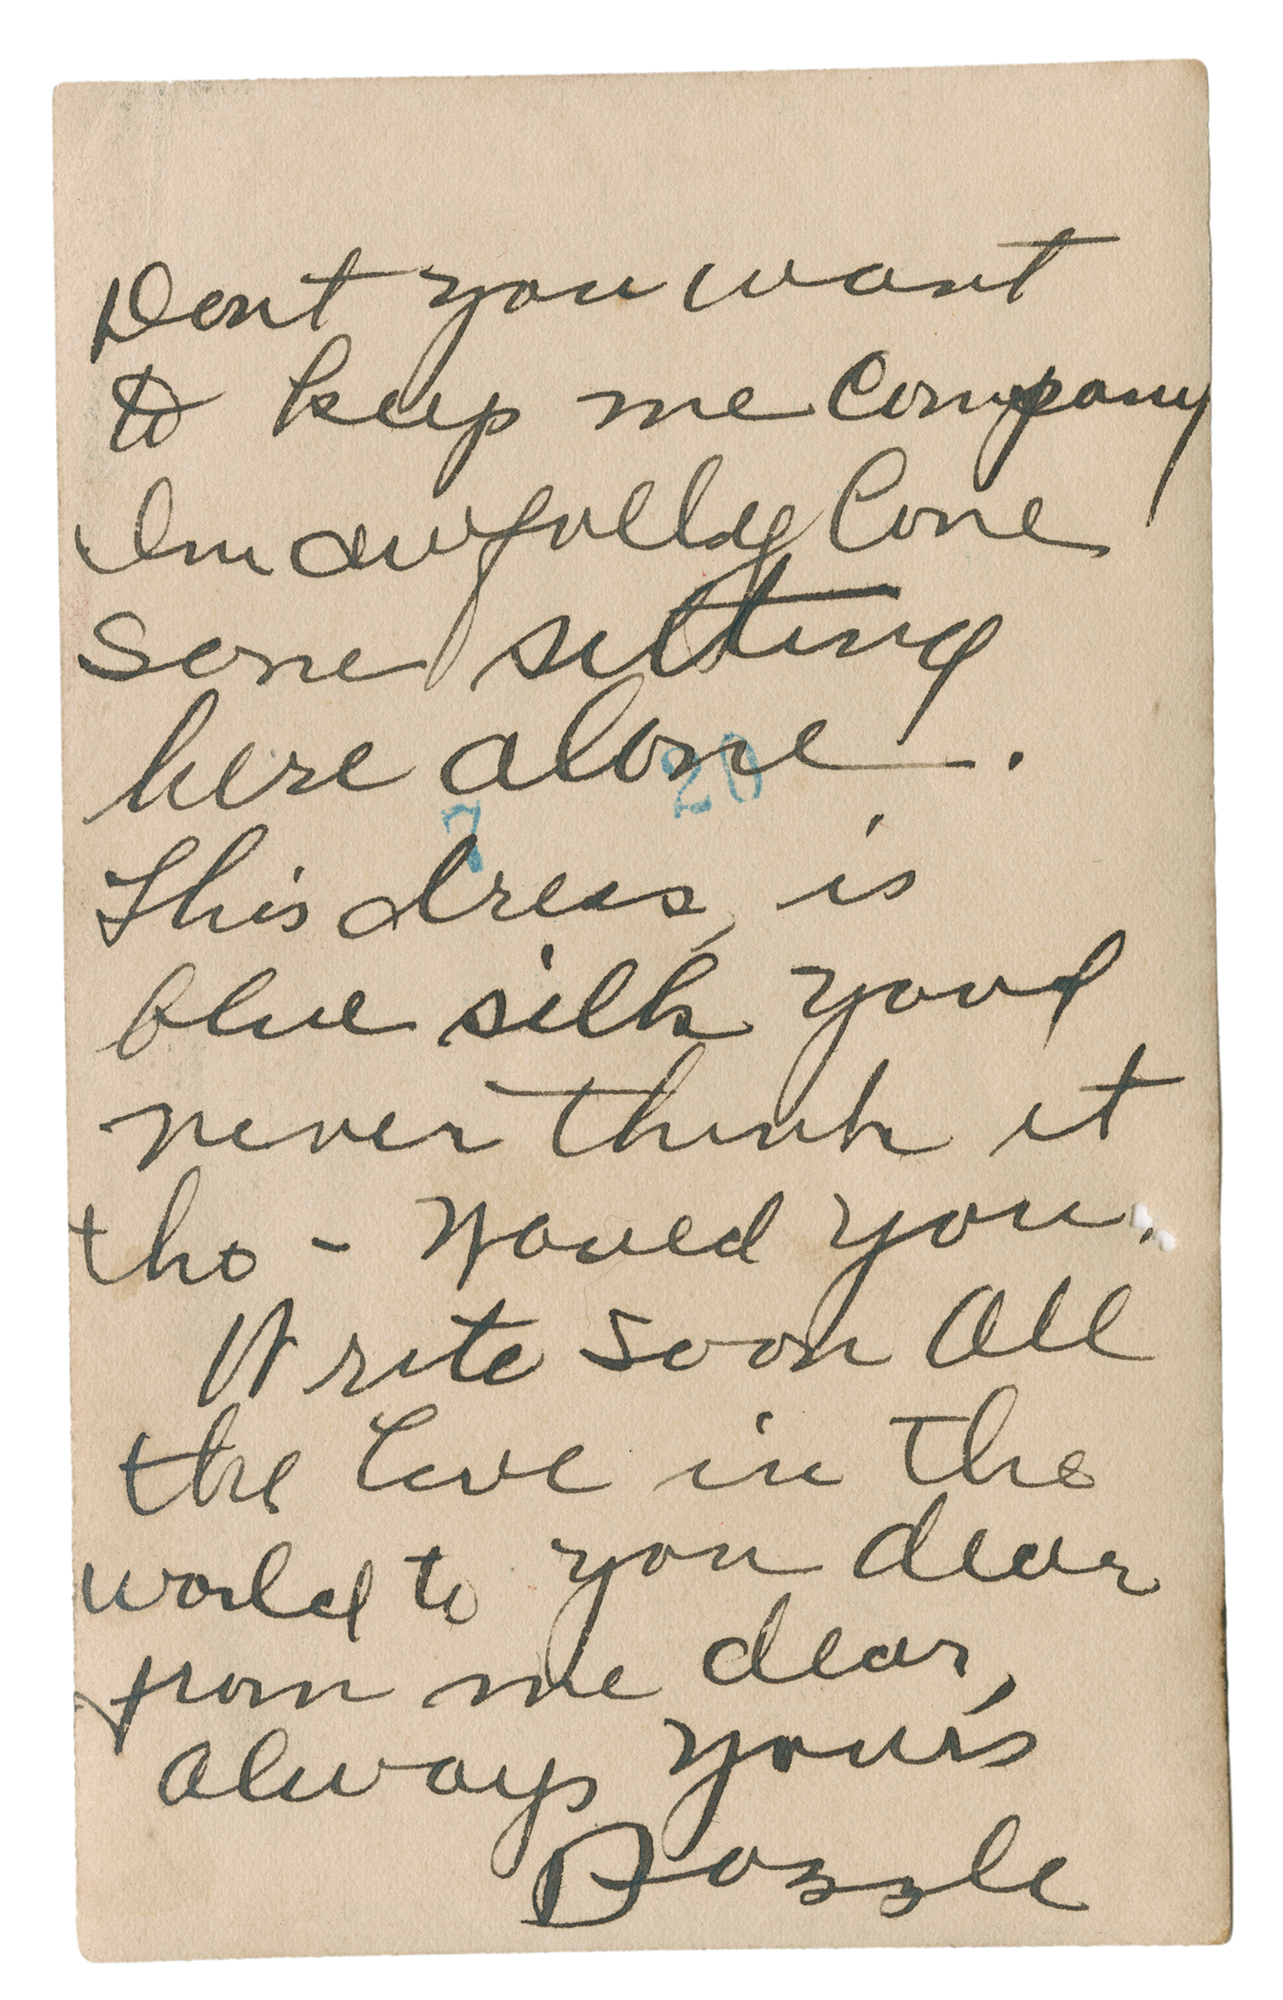 Dont you want
to keep me company
Im awfully lone
some sitting
here alone.
7 20
This dress, is
blue silk youd
never think it
tho - Would you.
Write soon All
the love in the
world to you dear
from me dear,
always your's
Dozzle